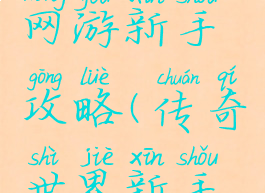 网游新手
gōng lüè chuán qí
攻略(传奇
shì jiè xīn shǒu
世界新手